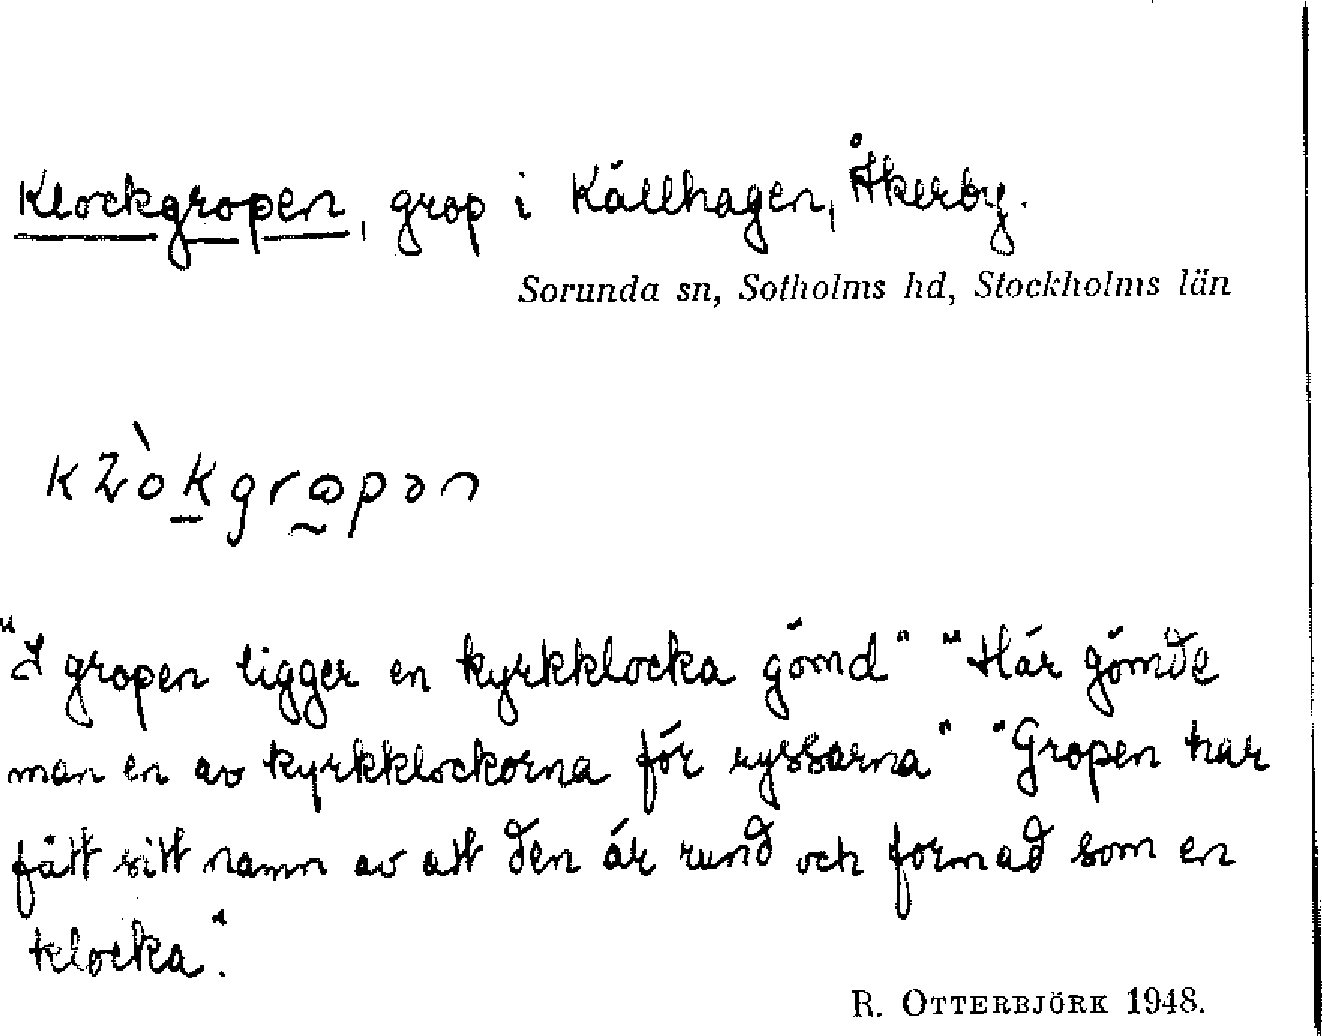 Klockgropen, grop i Källhagen, Åkerby.
Sorunda sn, Sotholms hd, Stockholms län
"I gropen ligger en kyrkklocka gömd" "Här gömde
man en av kyrkklockorna för ryssarna" "Gropen har
fått sitt namn av att den är rund och formad som en
klocka."
R. OTTERBJÖRK 1948.